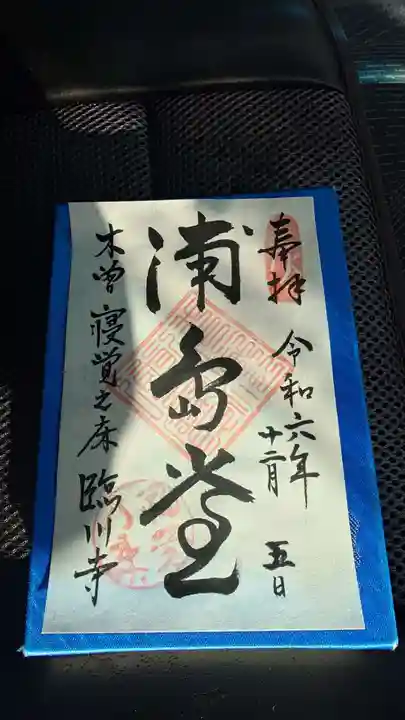 奉拝
令和六年
十二月
五日
浦島堂
木曽寝覚之床 臨川寺